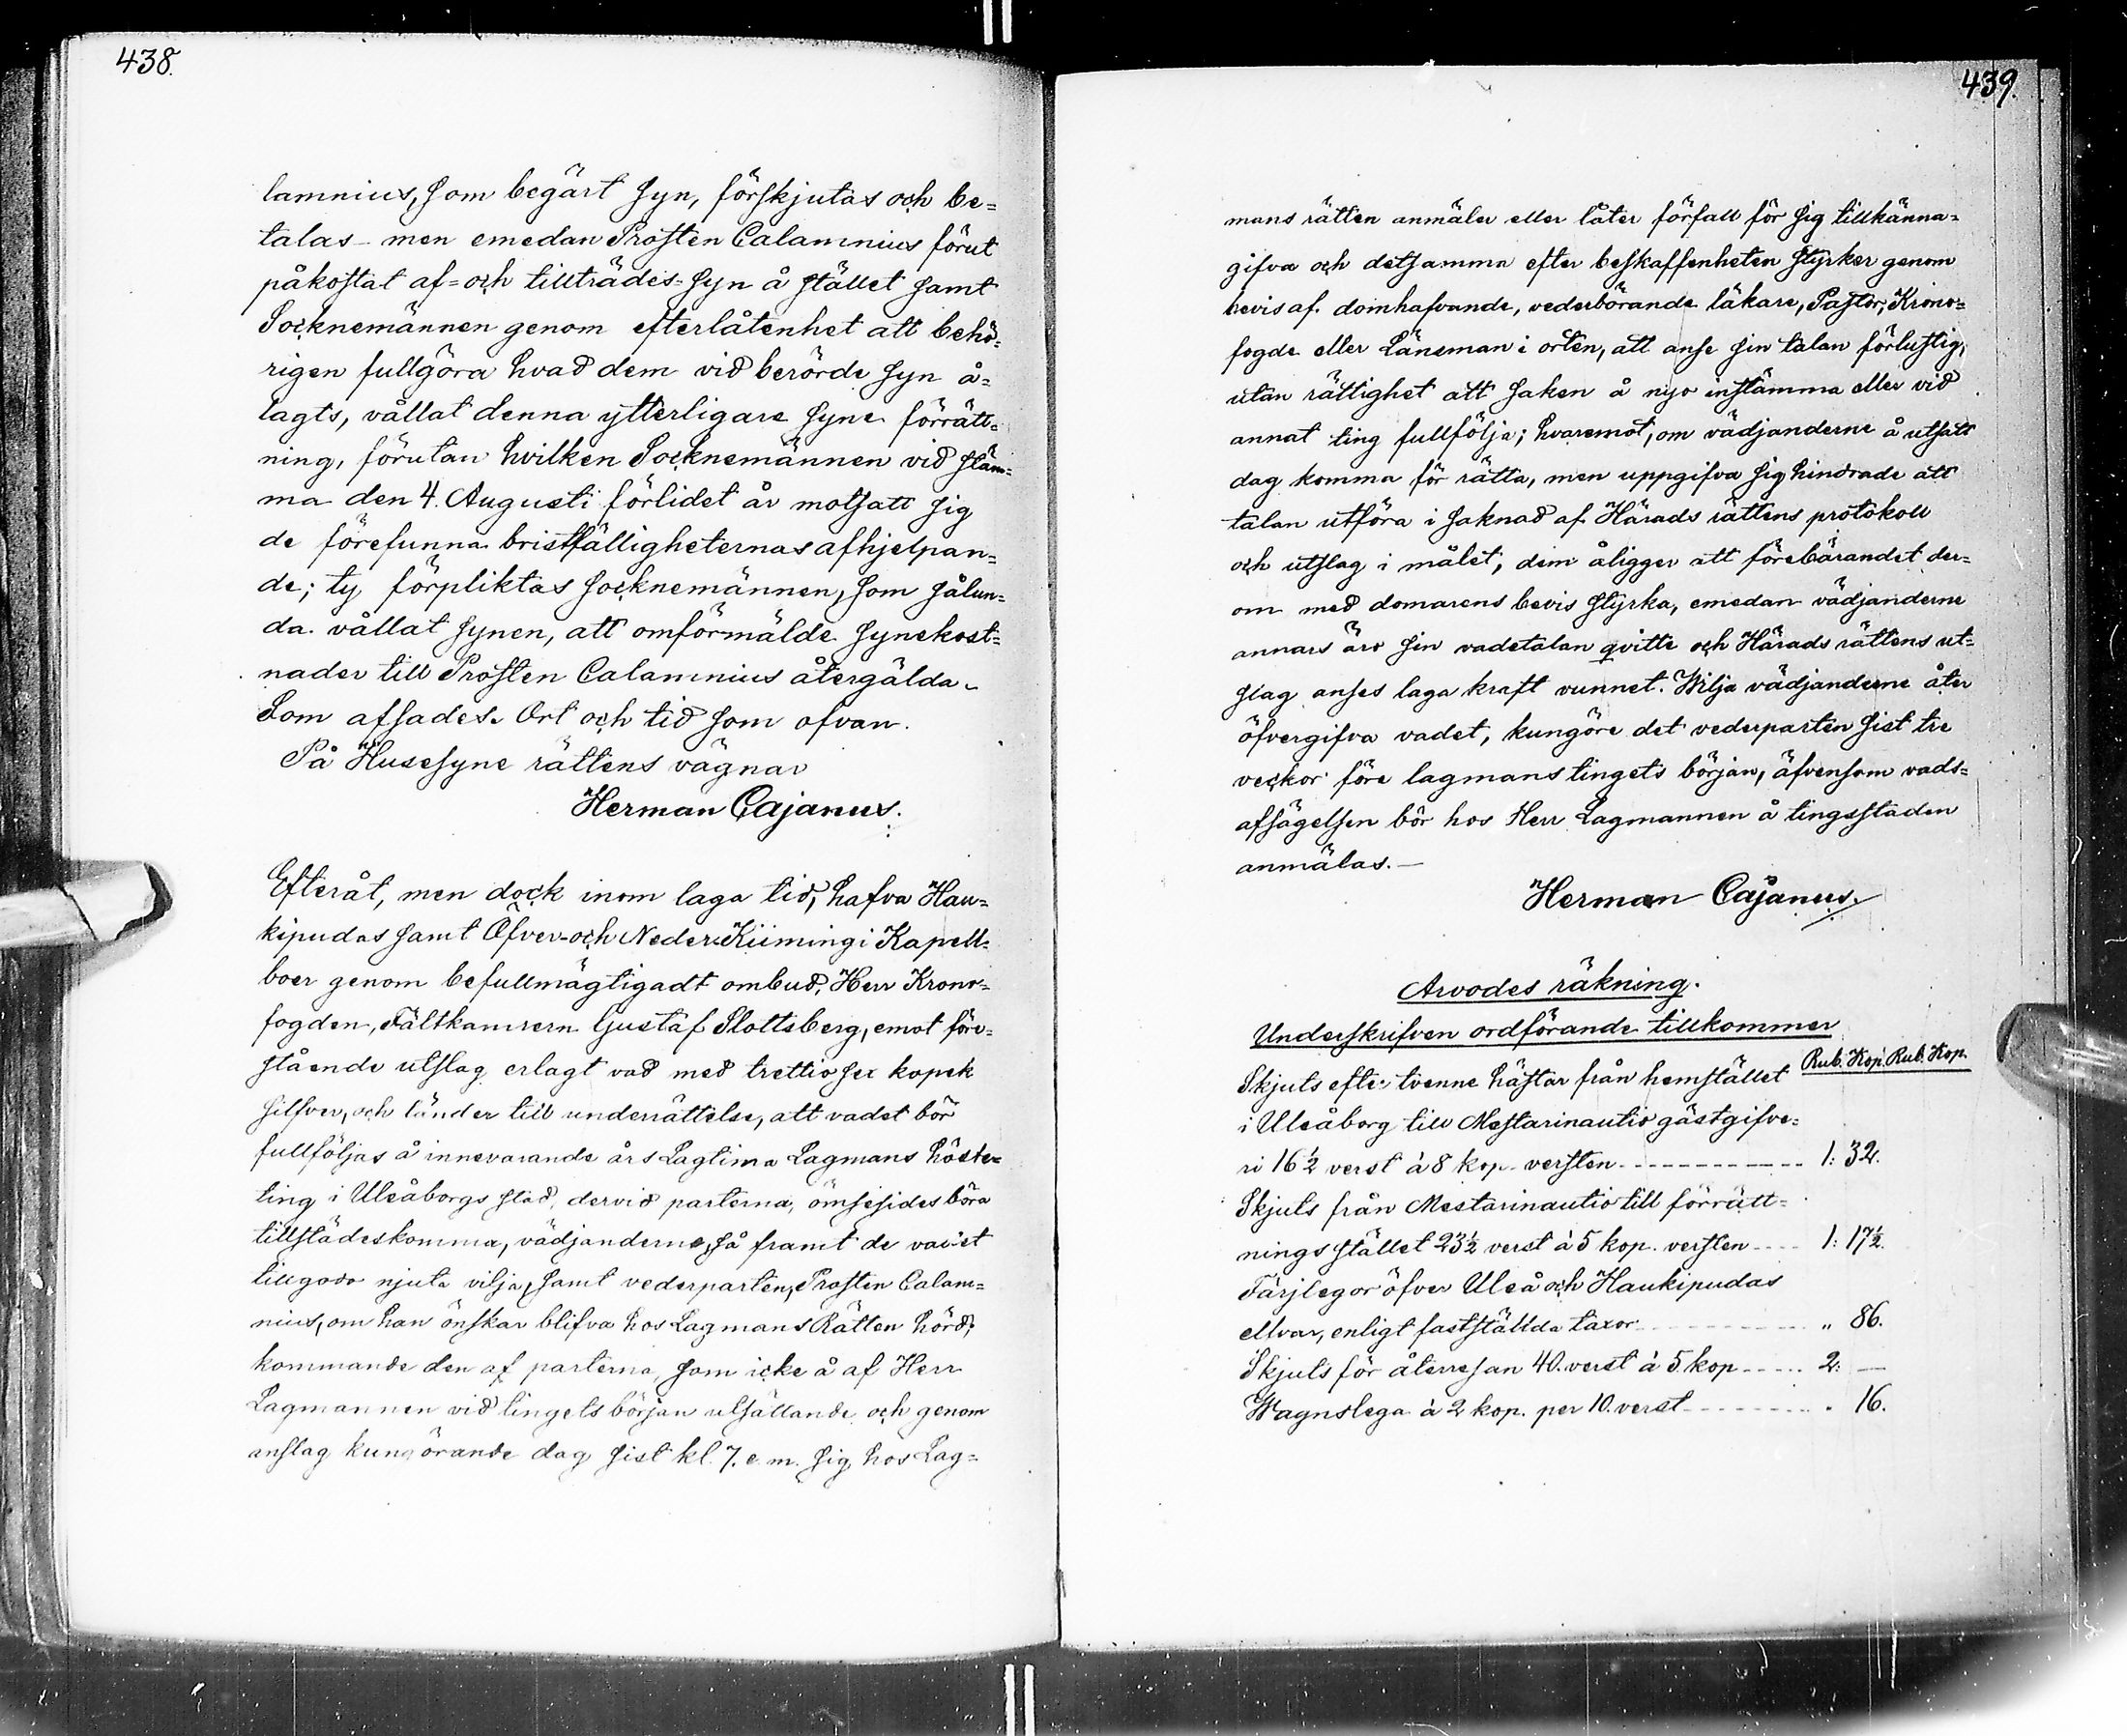 438.
lamnius, som begärt syn, förskjutas och be=
talas – men emedan Prosten Calamnius förut
påkostat af= och tillträdes=syn å stället samt
Socknemännen genom efterlåtenhet att behö=
rigen fullgöra hvad dem vid berörde syn å=
lagts, vållat denna ytterligare syne förrätt=
ning, förutan hvilken Socknemännen vid stäm=
ma den 4. Augusti förlidet år motsatt sig
de förefunna bristfälligheternas afhjelpan=
de; ty förpliktas socknemännen, som sålun=
da vållat synen, att omförmälde synekost=
nader till Prosten Calamnius återgälda.
Som afsades. Ort och tid som ofvan.
På Husesyne rättens vägnar
Herman Cajanus.
Efteråt, men dock inom laga tid, hafva Hau=
kipudas samt Öfver- och Neder Kiimingi Kapell=
boer genom befullmägtigadt ombud, Herr Krono=
fogden, Fältkamrern Gustaf Slottsberg, emot före=
stående utslag erlagt vad med trettio sex kopek
silfver, och länder till underrättelse, att vadet bör
fullföljas å innevarande års Lagtima Lagmans höste=
ting i Uleåborgs stad, dervid parterna, ömsesides böra
tillstädeskomma, vädjanderne, så framt de vadet
tillgodo njuta vilja, samt vederparten, Prosten Calam=
nius, om han önskar blifva hos Lagmans Rätten hörd,
kommande den af parterna, som icke å af Herr
Lagmannen vid tingets början utsättande och genom
anslag kungörande dag sist kl. 7. e. m. sig hos Lag=
439.
mans rätten anmäler eller låter förfall för sig tillkänna=
gifva och detsamma efter beskaffenheten styrker genom
bevis af domhafvande, vederbörande läkare, Pastor, Krono=
fogde eller Länsman i orten, att anse sin talan förlustig,
utan rättighet att saken å nyo instämma eller vid
annat ting fullfölja; hvaremot, om vädjanderne å utsatt
dag komma för rätta, men uppgifva sig hindrade att
talan utföra i saknad af Härads rättens protokoll
och utslag i målet, dem åligger att förebärandet der=
om med domarens bevis styrka, emedan vädjanderne
annars äro sin vadetalan qvitte och Härads rättens ut=
slag anses laga kraft vunnet. Wilja vädjanderne åter
öfvergifva vadet, kungöre det vederparten sist tre
veckor före lagmans tingets början, äfvensom vads=
afsägelsen bör hos Herr Lagmannen å tingsstaden
anmälas. –
Herman Cajanus.
Arvodes räkning.
Underskrifven ordförande tillkommer
Rub. Kop. Rub. Kop.
Skjuts efter tvenne hästar från hemstället
i Uleåborg till Mestarinautio gästgifve=
ri 16 1/2 verst à 8 kop. versten - - - 1: 32.
Skjuts från Mestarinautio till förrätt=
nings stället 23 1/2 verst à 5 kop. versten - - - 1: 17 1/2.
Färjlegor öfver Uleå och Haukipudas
elfvar, enligt fastställda taxor - - - „ 86.
Skjuts för återresan 40. verst à 5 kop - - - 2. –
Wagnslega à 2 kop. per 10. verst - - - „ 16.